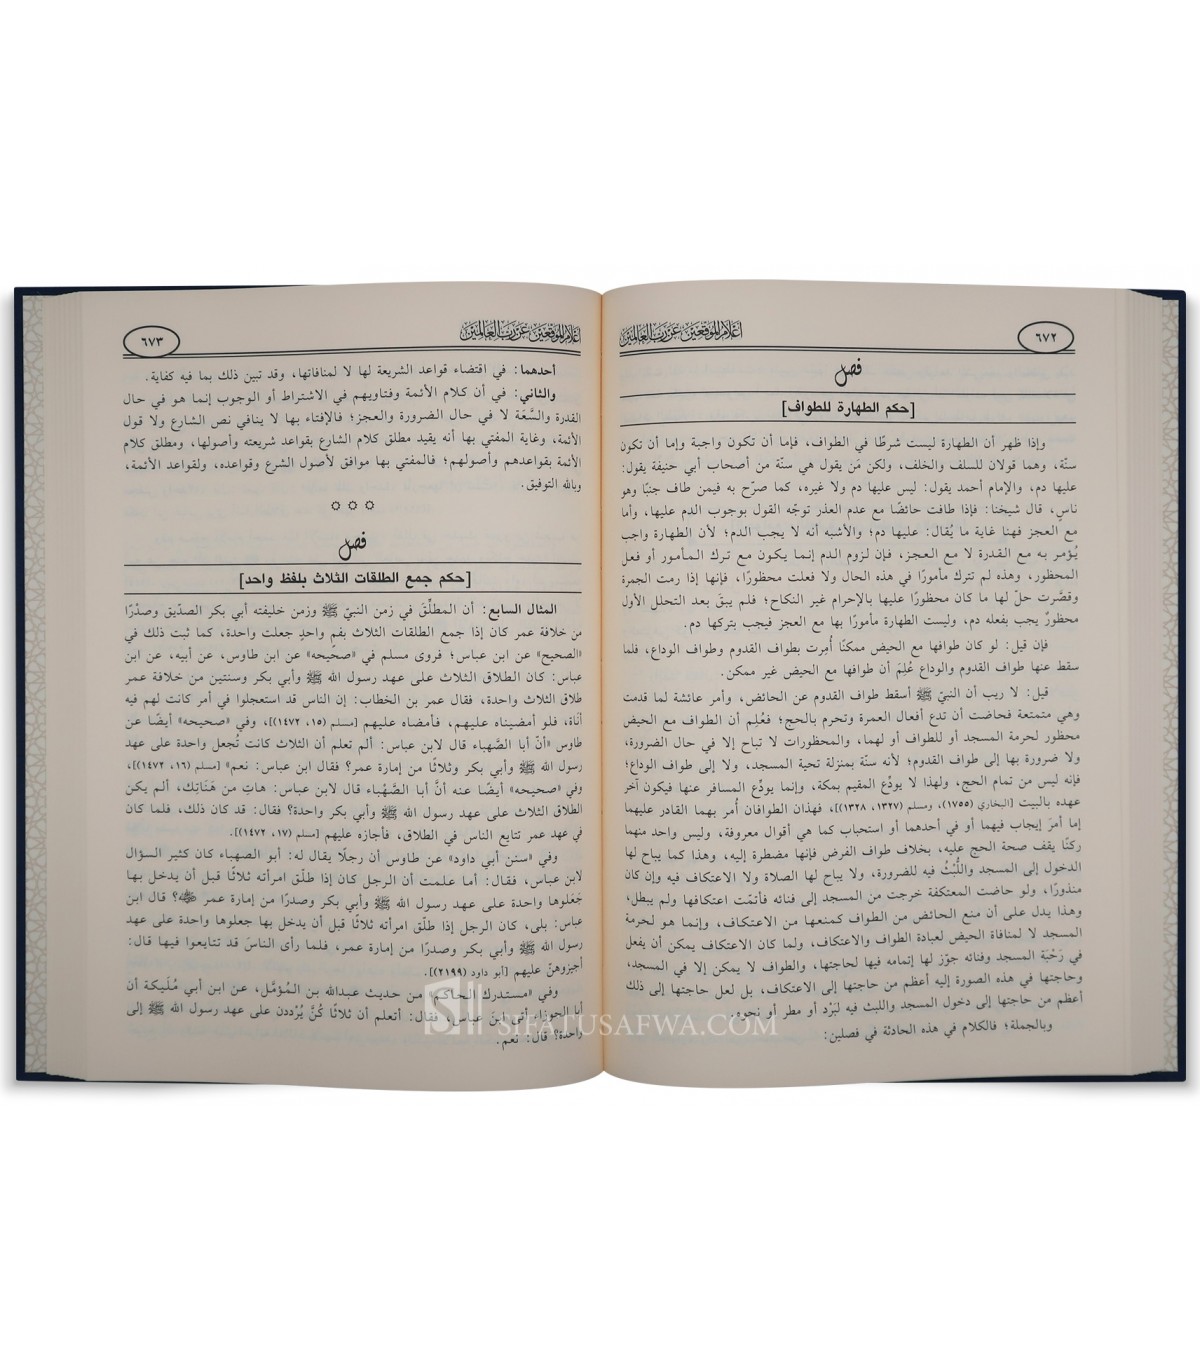 ٦٧٢
إعلام الموقعين عن رب العالمين
فصل
[حكم الطهارة للطواف]
وإذا ظهر أن الطهارة ليست شرطًا في الطواف، فإما أن تكون واجبة وإما أن تكون
سنّة، وهما قولان للسلف والخلف، ولكن مَن يقول هي سنّة من أصحاب أبي حنيفة يقول:
عليها دم، والإمام أحمد يقول: ليس عليها دم ولا غيره، كما صرّح به فيمن طاف جنبًا وهو
ناسٍ، قال شيخنا: فإذا طافت حائضًا مع عدم العذر توجّه القول بوجوب الدم عليها، وأما
مع العجز فهنا غاية ما يُقال: عليها دم؛ والأشبه أنه لا يجب الدم؛ لأن الطهارة واجب
يُؤمر به مع القدرة لا مع العجز، فإن لزوم الدم إنما يكون مع ترك المأمور أو فعل
المحظور، وهذه لم تترك مأمورًا في هذه الحال ولا فعلت محظورًا، فإنها إذا رمت الجمرة
وقصَّرت حلّ لها ما كان محظورًا عليها بالإحرام غير النكاح؛ فلم يبقَ بعد التحلل الأول
محظورٌ يجب بفعله دم، وليست الطهارة مأمورًا بها مع العجز فيجب بتركها دم.
فإن قيل: لو كان طوافها مع الحيض ممكنًا أُمِرت بطواف القدوم وطواف الوداع، فلما
سقط عنها طواف القدوم والوداع عُلِمَ أن طوافها مع الحيض غير ممكن.
قيل: لا ريب أن النبيّ ﷺ أسقط طواف القدوم عن الحائض، وأمر عائشة لما قدمت
وهي متمتعة فحاضت أن تدع أفعال العمرة وتحرم بالحج؛ فعُلِم أن الطواف مع الحيض
محظور لحرمة المسجد أو للطواف أو لهما، والمحظورات لا تباح إلا في حال الضرورة،
ولا ضرورة بها إلى طواف القدوم؛ لأنه سنّة بمنزلة تحية المسجد، ولا إلى طواف الوداع؛
فإنه ليس من تمام الحج، ولهذا لا يودِّع المقيم بمكة، وإنما يودِّع المسافر عنها فيكون آخر
عهده بالبيت [البخاري (١٧٥٥)، ومسلم (١٣٢٧، ١٣٢٨)]، فهذان الطوافان أُمر بهما القادر عليهما
إما أمرَ إيجاب فيهما أو في أحدهما أو استحباب كما هي أقوال معروفة، وليس واحد منهما
ركنًا يقف صحة الحج عليه، بخلاف طواف الفرض فإنها مضطرة إليه، وهذا كما يباح لها
الدخول إلى المسجد واللُّبْثُ فيه للضرورة، ولا يباح لها الصلاة ولا الاعتكاف فيه وإن كان
منذورًا، ولو حاضت المعتكفة خرجت من المسجد إلى فنائه فأتمّت اعتكافها ولم يبطل؛
وهذا يدل على أن منع الحائض من الطواف كمنعها من الاعتكاف، وإنما هو لحرمة
المسجد لا لمنافاة الحيض لعبادة الطواف والاعتكاف، ولما كان الاعتكاف يمكن أن يفعل
في رَحْبَة المسجد وفنائه جوّز لها إتمامه فيها لحاجتها، والطواف لا يمكن إلا في المسجد،
وحاجتها في هذه الصورة إليه أعظم من حاجتها إلى الاعتكاف، بل لعل حاجتها إلى ذلك
أعظم من حاجتها إلى دخول المسجد واللبث فيه لبَرْد أو مطر أو نحوه.
وبالجملة؛ فالكلام في هذه الحادثة في فصلين:
إعلام الموقعين عن رب العالمين
٦٧٣
أحدهما: في اقتضاء قواعد الشريعة لها لا لمنافاتها، وقد تبين ذلك بما فيه كفاية.
والثاني: في أن كلام الأئمة وفتاويهم في الاشتراط أو الوجوب إنما هو في حال
القدرة والسَّعَة لا في حال الضرورة والعجز؛ فالإفتاء بها لا ينافي نص الشارع ولا قول
الأئمة، وغاية المفتي بها أنه يقيد مطلق كلام الشارع بقواعد شريعته وأصولها، ومطلق كلام
الأئمة بقواعدهم وأصولهم؛ فالمفتي بها موافق لأصول الشرع وقواعده، ولقواعد الأئمة،
وبالله التوفيق.
فصل
[حكم جمع الطلقات الثلاث بلفظ واحد]
المثال السابع: أن المطلِّقَ في زمن النبيّ ﷺ وزمن خليفته أبي بكر الصدّيق وصدْرًا
من خلافة عمر كان إذا جمع الطلقات الثلاث بفمٍ واحدٍ جعلت واحدة، كما ثبت ذلك في
«الصحيح» عن ابن عباس؛ فروى مسلم في «صحيحه» عن ابن طاوس، عن أبيه، عن ابن
عباس: كان الطلاق الثلاث على عهد رسول الله ﷺ وأبي بكر وسنتين من خلافة عمر
طلاق الثلاث واحدة، فقال عمر بن الخطاب: إن الناس قد استعجلوا في أمر كانت لهم فيه
أناة، فلو أمضيناه عليهم، فأمضاه عليهم [مسلم (١٥، ١٤٧٢)]، وفي «صحيحه» أيضًا عن
طاوس «أنّ أبا الصَّهْباء قال لابن عباس: ألم تعلم أن الثلاث كانت تُجعل واحدة على عهد
رسول الله ﷺ وأبي بكر وثلاثًا من إمارة عمر؟ فقال ابن عباس: نعم» [مسلم (١٦، ١٤٧٢)]،
وفي «صحيحه» أيضًا عنه أنَّ أبا الصَّهْباء قال لابن عباس: هاتِ من هَنَاتِك، ألم يكن
الطلاق الثلاث على عهد رسول الله ﷺ وأبي بكر واحدة؟ فقال: قد كان ذلك، فلما كان
في عهد عمر تتايع الناس في الطلاق، فأجازه عليهم [مسلم (١٧، ١٤٧٢)].
وفي «سنن أبي داود» عن طاوس أن رجلًا يقال له: أبو الصهباء كان كثير السؤال
لابن عباس، فقال: أما علمت أن الرجل كان إذا طلّق امرأته ثلاثًا قبل أن يدخل بها
جَعَلوها واحدة على عهد رسول الله ﷺ وأبي بكر وصدرًا من إمارة عمر ؟ قال ابن
عباس: بلى، كان الرجل إذا طلّق امرأته ثلاثًا قبل أن يدخل بها جعلوها واحدة على عهد
رسول الله ﷺ وأبي بكر وصدرًا من إمارة عمر، فلما رأى الناسَ قد تتايعوا فيها قال:
أجيزوهنّ عليهم [أبو داود (٢١٩٩)].
وفي «مستدرك الحاكم» من حديث عبدالله بن المُؤمَّل، عن ابن أبي مُلَيكة أن
أبا الجوزاء أتى ابنَ عباس، فقال: أتعلم أن ثلاثًا كُنَّ يُرْددن على عهد رسول الله ﷺ إلى
واحدة؟ قال: نعم.
SIFATUSAFWA.COM